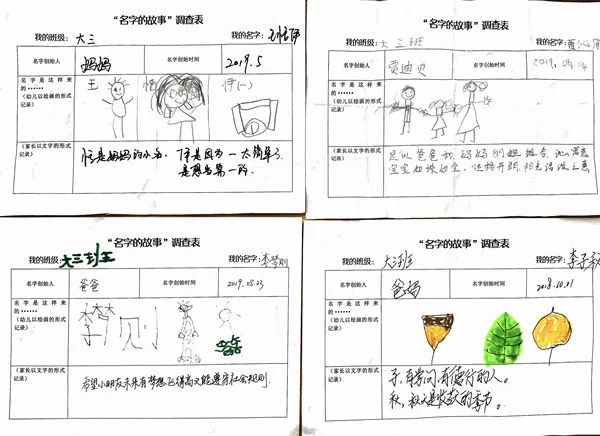 “名字的故事”调查表
我的班级：大三 我的名字：王恬伊
名字创始人 妈妈 名字创始时间 2019.5
名字是这样来
的······
（幼儿以绘画的形式
记录）
王 恬 伊(一)
（家长以文字的形式
记录）
恬是妈妈的小名，伊是因为一太简单了
是想与第一所
“名字的故事”调查表
我的班级：大三班 我的名字：贾沁
名字创始人 贾迪贝 名字创始时间 2019.04.04
名字是这样来
的······
（幼儿以绘画的形式
记录）
（家长以文字的形式
记录）
是以爸爸和妈妈的姓组合，沁寓意
宝宝如 ，性格开朗，阳光活泼之意
“名字的故事”调查表
我的班级：大三班 我的名字：李梦则
名字创始人 爸爸 名字创始时间 2019.08.23
名字是这样来
的······
（幼儿以绘画的形式
记录）
李梦则
（家长以文字的形式
记录）
希望小朋友未来有梦想飞得高又能遵守社会规则.
“名字的故事”调查表
我的班级：大三班 我的名字：李子秋
名字创始人 爸妈 名字创始时间 2018.10.01
名字是这样来
的······
（幼儿以绘画的形式
记录）
（家长以文字的形式
记录）
子，有学问有德行的人。
秋，秋天是收获的季节。